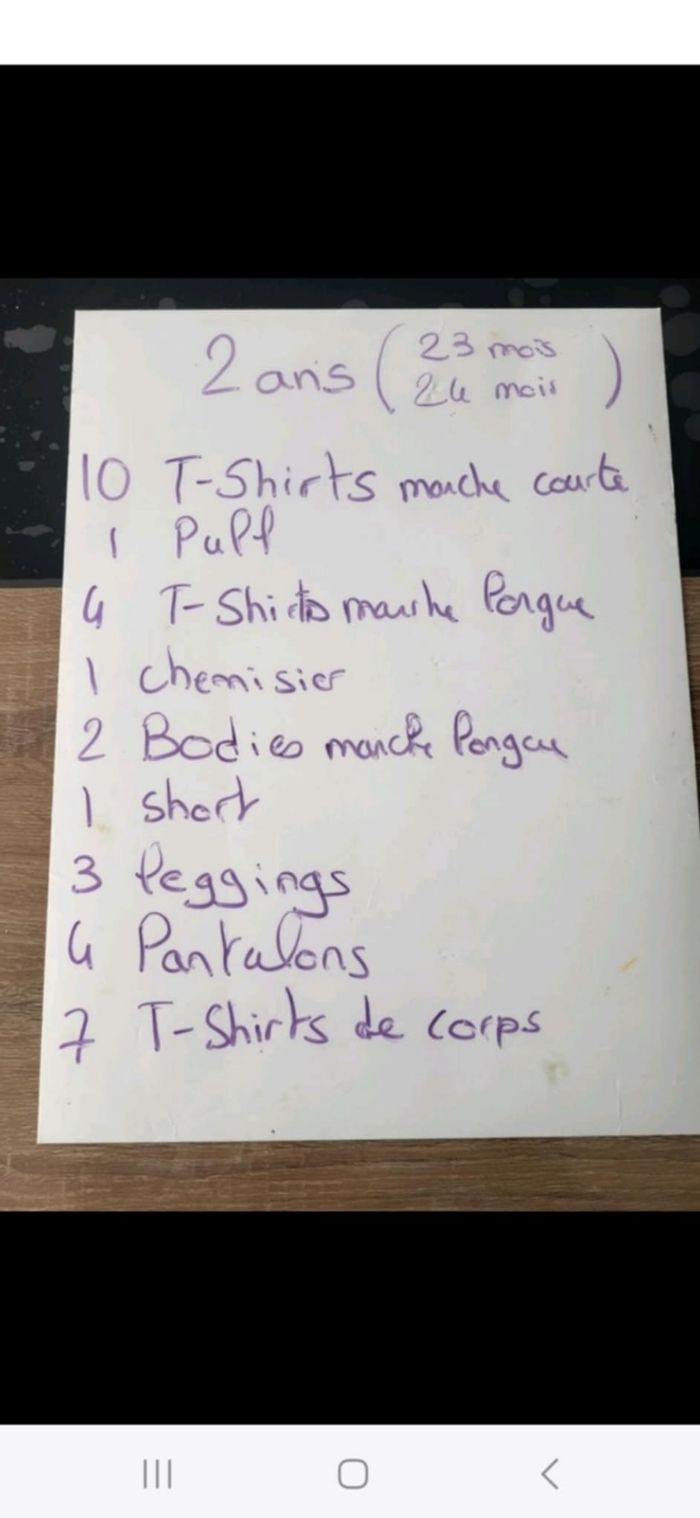 2 ans ( 23 mois
24 mois )
10 T-Shirts manche courte
1 Pull
4 T-Shirts manche longue
1 chemisier
2 Bodies manche longue
1 short
3 leggings
4 Pantalons
7 T-Shirts de corps